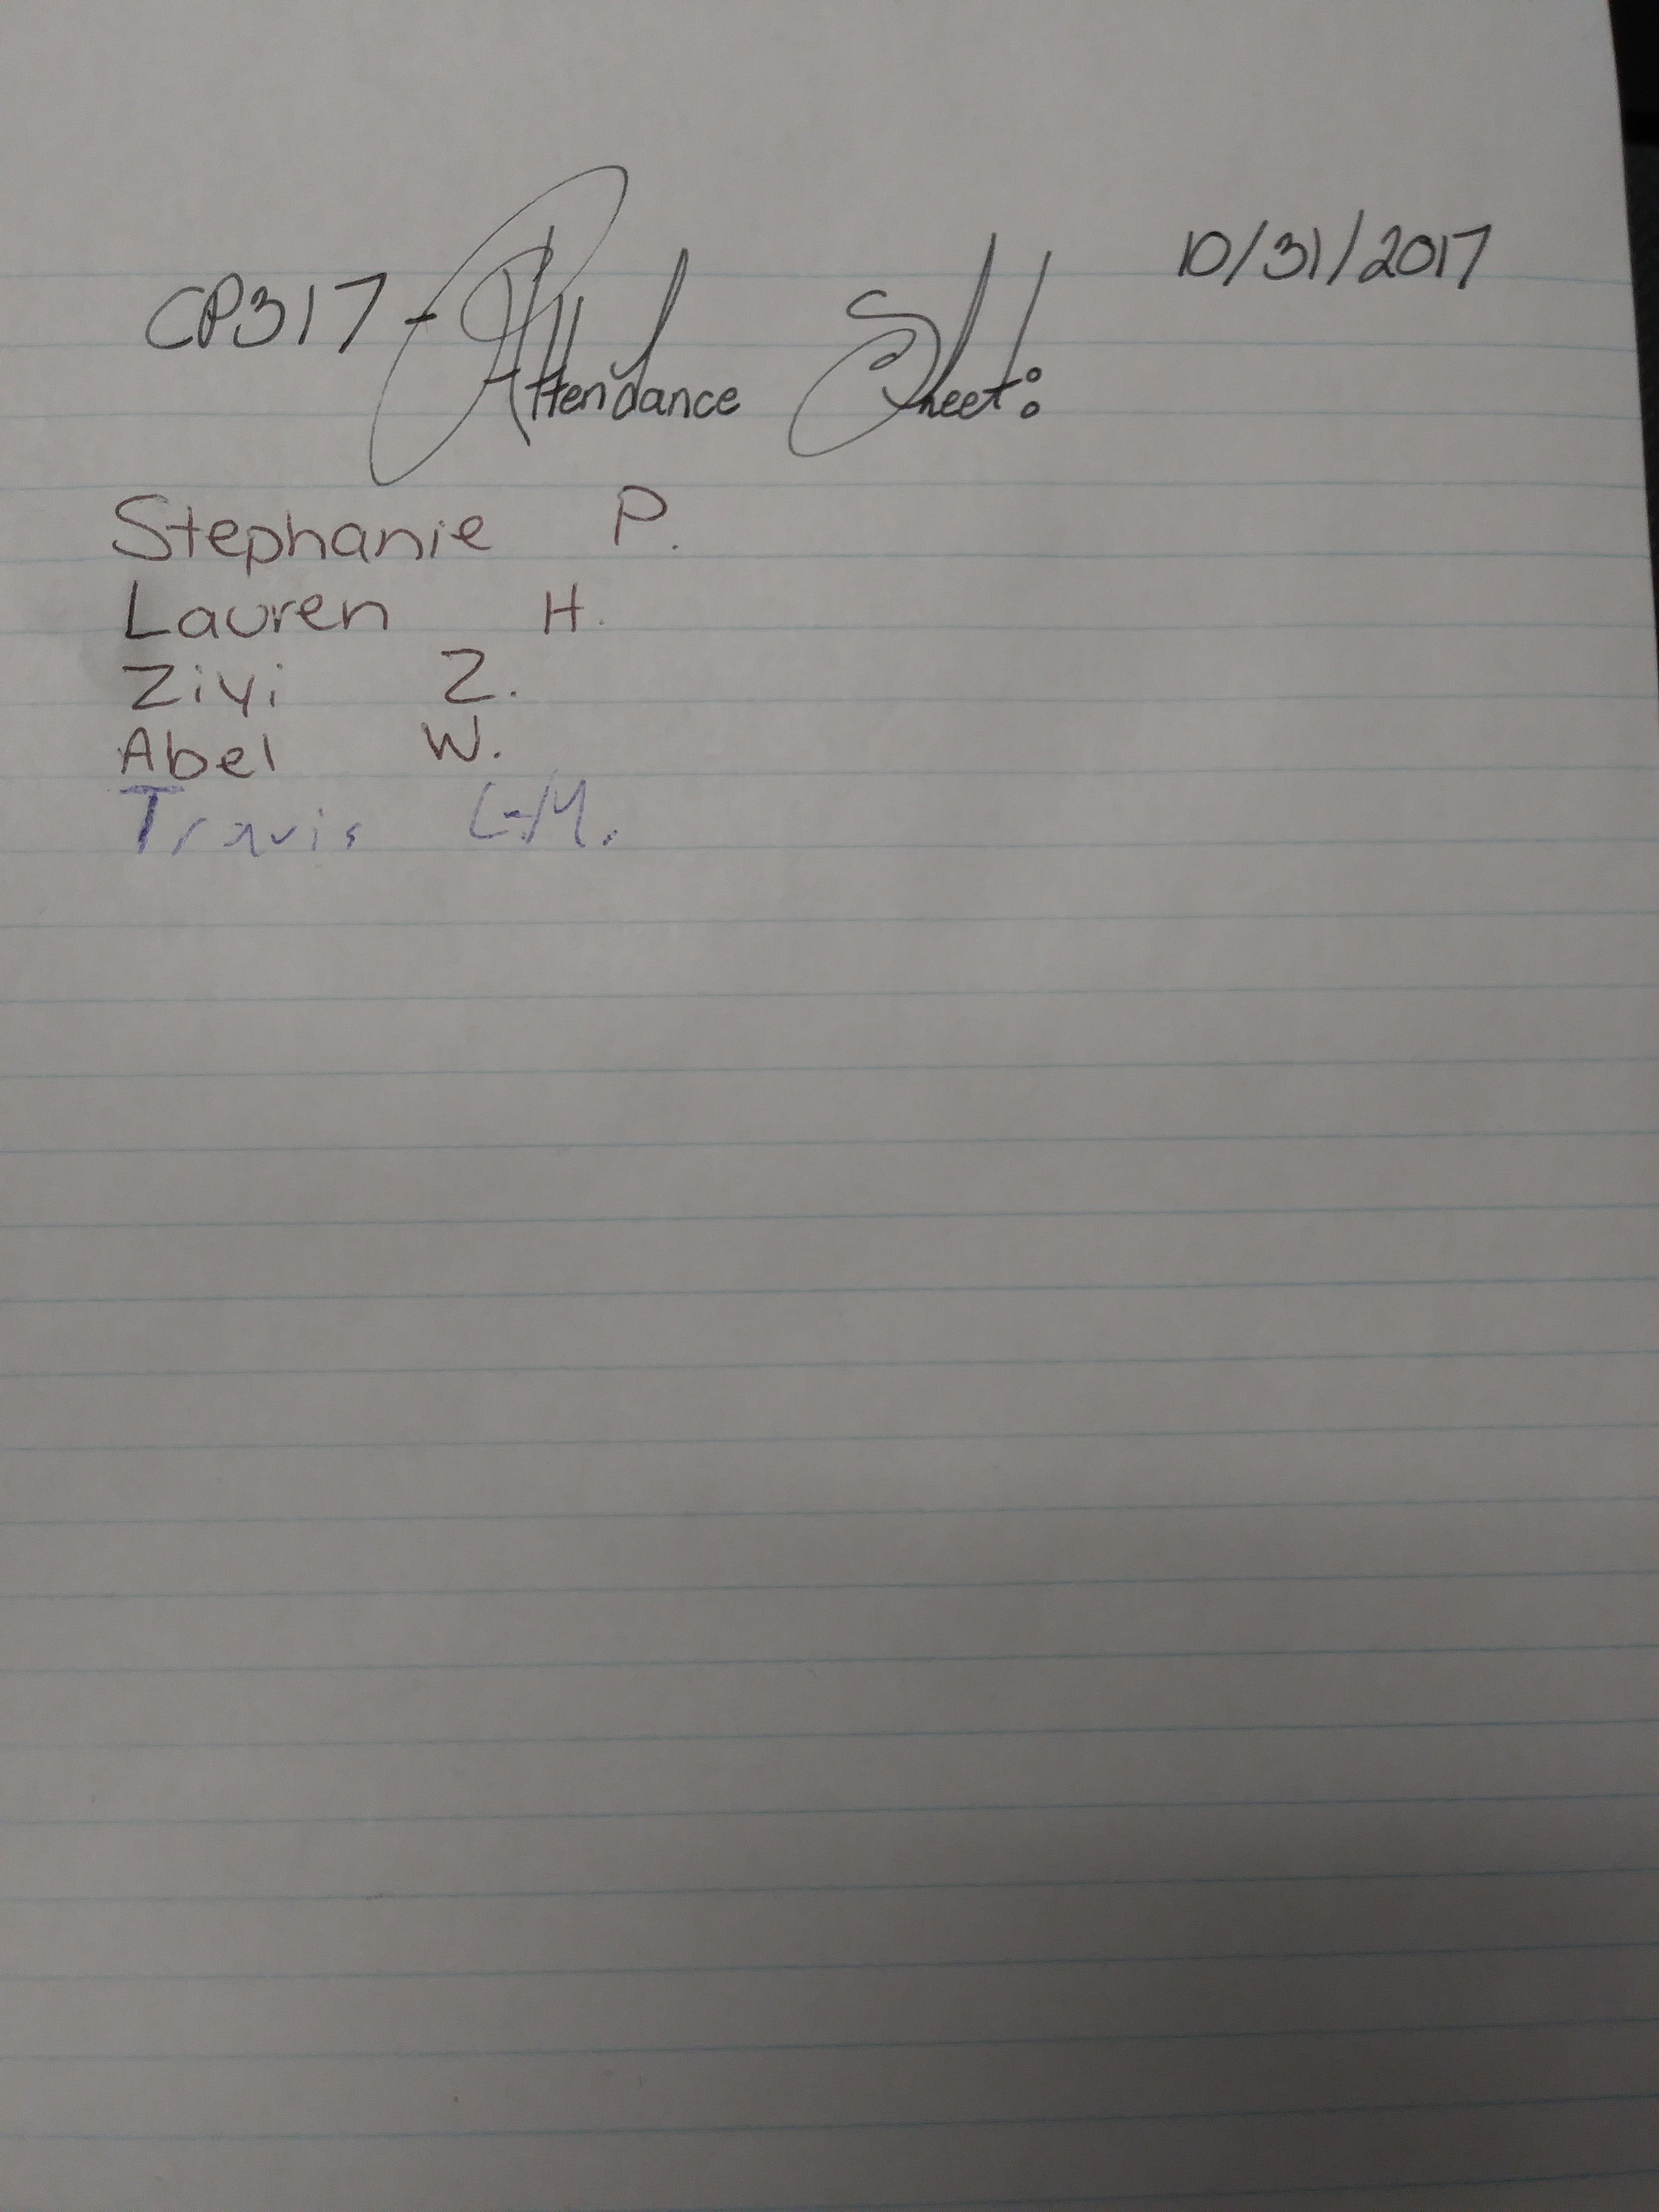 CP317 - Attendance Sheet: 10/31/2017
Stephanie P.
Lauren H.
Ziyi Z.
Abel W.
Travis L-M.